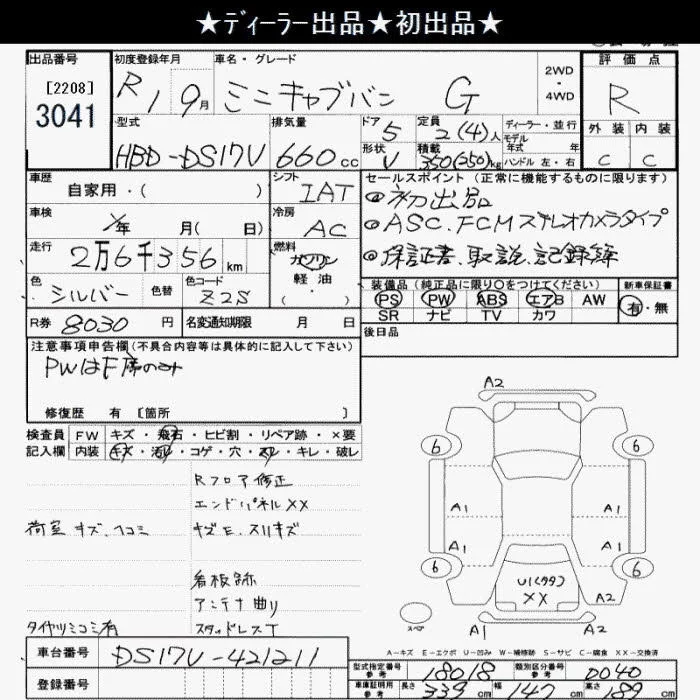 ★ディーラー出品★初出品★
出品番号
[2208]
3041
初度登録年月
R1 9月
車名・グレード
ミニキャブバン G
2WD
・
4WD
評価点
R
外装 内装
C C
型式
HBD-DS17V
排気量
660cc
ドア
5
形状
V
定員
2(4)人
積載
350(250)kg
ディーラー・並行
モデル
年式 年
ハンドル 左・右
車歴
自家用・( )
シフト
IAT
車検
年 月( 日)
冷房
AC
走行
2万6千356km
燃料
ガソリン
軽油
( )
色
シルバー
色替
色コード
Z2S
R券 8030円
名変通知期限 月 日
セールスポイント(正常に機能するものに限ります)
◎初出品
◎ASC.FCMステレオカメラタイプ
◎保証書.取説.記録簿
装備品(純正品に限り○をつけてください)
新車保証書
PS PW ABS エアB AW
SR ナビ TV カワ
有・無
後日品
注意事項申告欄(不具合内容等は具体的に記入して下さい)
PWはF席のみ
修復歴 有 [箇所 ]
検査員
記入欄
FW キズ・飛石・ヒビ割・リペア跡・×要
内装 キズ・汚れ・コゲ・穴・スレ・キレ・破レ
Rフロア修正
エンドパネルXX
荷室キズ.ヘコミ
キズE.スリキズ
看板跡
アンテナ曲り
タイヤツミコミ有
スタッドレスT
A2
6 6
A1 A1
A1 A1
6 6
U1(ワタ)
XX
スペア
A1 A2
A-キズ E-エクボ U-凹み W-補修跡 S-サビ C-腐食 XX-交換済
車台番号
DS17V-421211
登録番号
型式指定番号
参考
18018
類別区分番号
参考
0040
車庫証明用
参考
長さ 339cm 幅 147cm 高さ 189cm